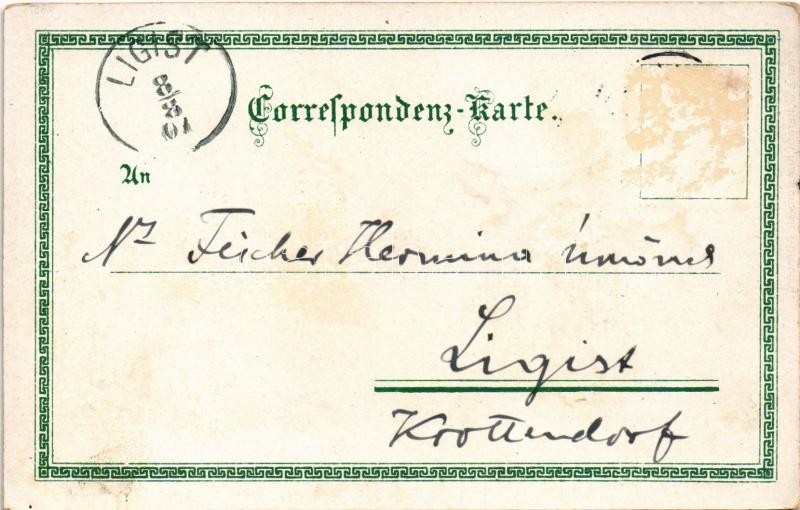 LIGIST
8/8
01
Correspondenz-Karte.
An
Nz Feicher Hermina úrnőnek
Ligist
Krottendorf